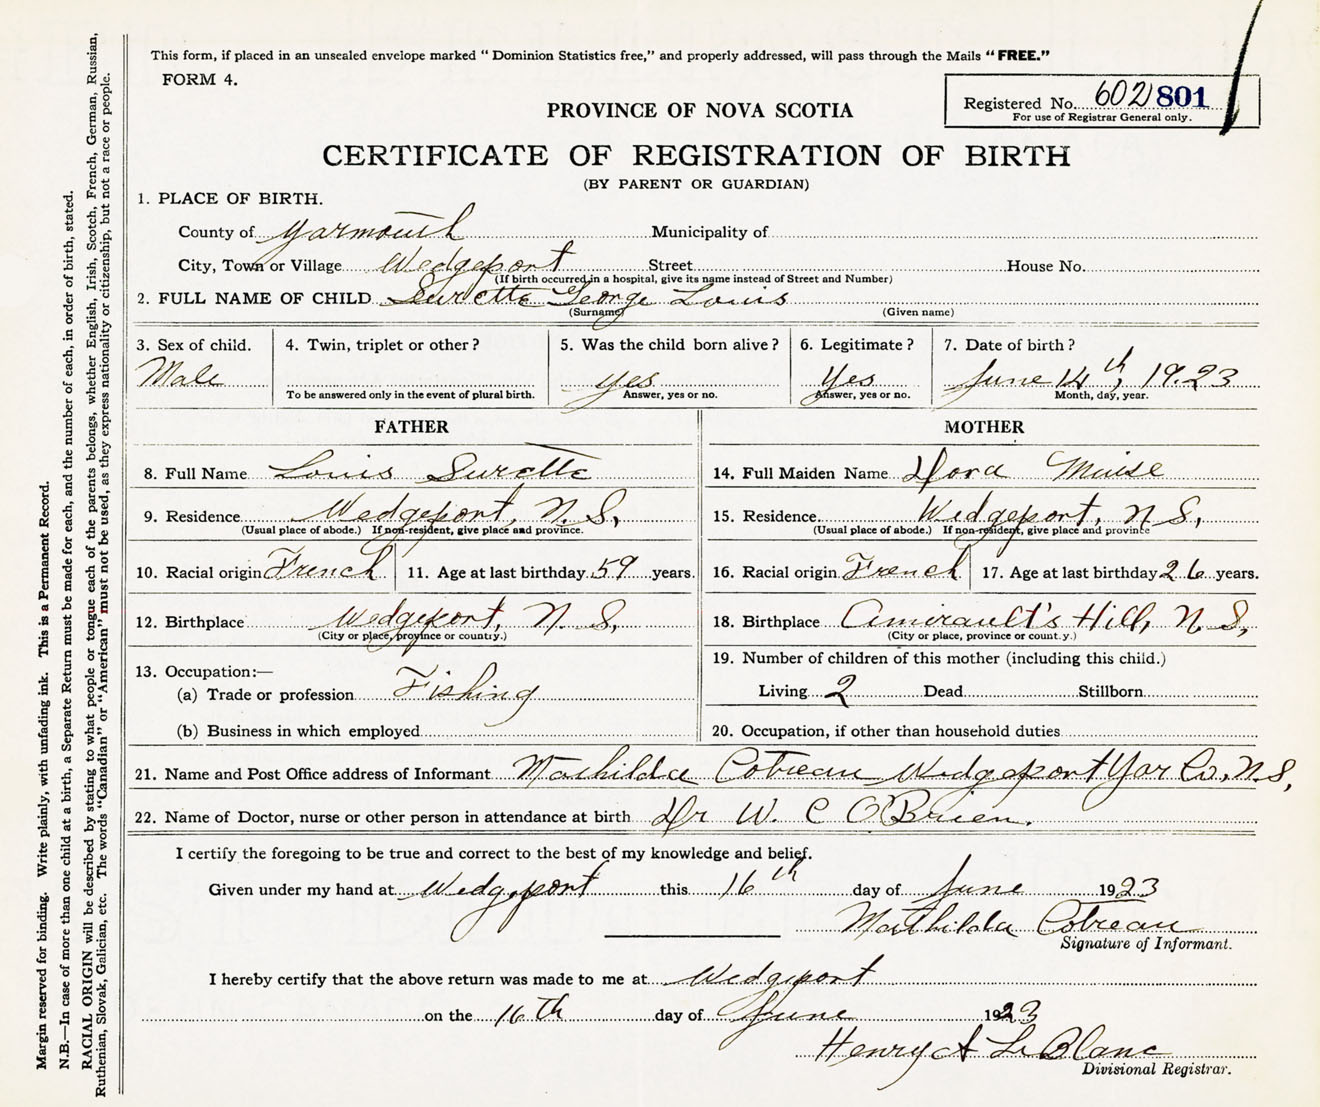 This form, if placed in an unsealed envelope marked “ Dominion Statistics free,” and properly addressed, will pass through the Mails “ FREE.”
FORM 4.
Registered No. 602 801
For use of Registrar General only.
PROVINCE OF NOVA SCOTIA
CERTIFICATE OF REGISTRATION OF BIRTH
(BY PARENT OR GUARDIAN)
1. PLACE OF BIRTH.
County of Yarmouth Municipality of
City, Town or Village Wedgeport Street House No.
(If birth occurred in a hospital, give its name instead of Street and Number)
2. FULL NAME OF CHILD Surette George Louis
(Surname) (Given name)
3. Sex of child. 4. Twin, triplet or other ? 5. Was the child born alive ? 6. Legitimate ? 7. Date of birth ?
Male yes Yes June 14th, 1923
To be answered only in the event of plural birth. Answer, yes or no. Answer, yes or no. Month, day, year.
FATHER MOTHER
8. Full Name Louis Surette 14. Full Maiden Name Dora Muise
9. Residence Wedgeport, N.S, 15. Residence Wedgeport, N S,
(Usual place of abode.) If non-resident, give place and province. (Usual place of abode.) If non-resident, give place and province
10. Racial origin French 11. Age at last birthday 59 years. 16. Racial origin French 17. Age at last birthday 26 years.
12. Birthplace Wedgeport, N. S, 18. Birthplace Amirault's Hill, N. S,
(City or place, province or country.) (City or place, province or count.y.)
13. Occupation:— 19. Number of children of this mother (including this child.)
(a) Trade or profession Fishing Living 2 Dead Stillborn
(b) Business in which employed 20. Occupation, if other than household duties
21. Name and Post Office address of Informant Mathilda Cotreau Wedgeport Yar Co, N.S,
22. Name of Doctor, nurse or other person in attendance at birth Dr W. C O'Brien.
I certify the foregoing to be true and correct to the best of my knowledge and belief.
Given under my hand at Wedgeport this 16th day of June 1923
Mathilda Cotreau
Signature of Informant.
I hereby certify that the above return was made to me at Wedgeport
on the 16th day of June 1923
Henry A LeBlanc
Divisional Registrar.
Margin reserved for binding. Write plainly, with unfading ink. This is a Permanent Record.
N.B.—In case of more than one child at a birth, a Separate Return must be made for each, and the number of each, in order of birth, stated.
RACIAL ORIGIN will be described by stating to what people or tongue each of the parents belongs, whether English, Irish, Scotch, French, German, Russian,
Ruthenian, Slovak, Galician, etc. The words “Canadian” or “American” must not be used, as they express nationality or citizenship, but not a race or people.